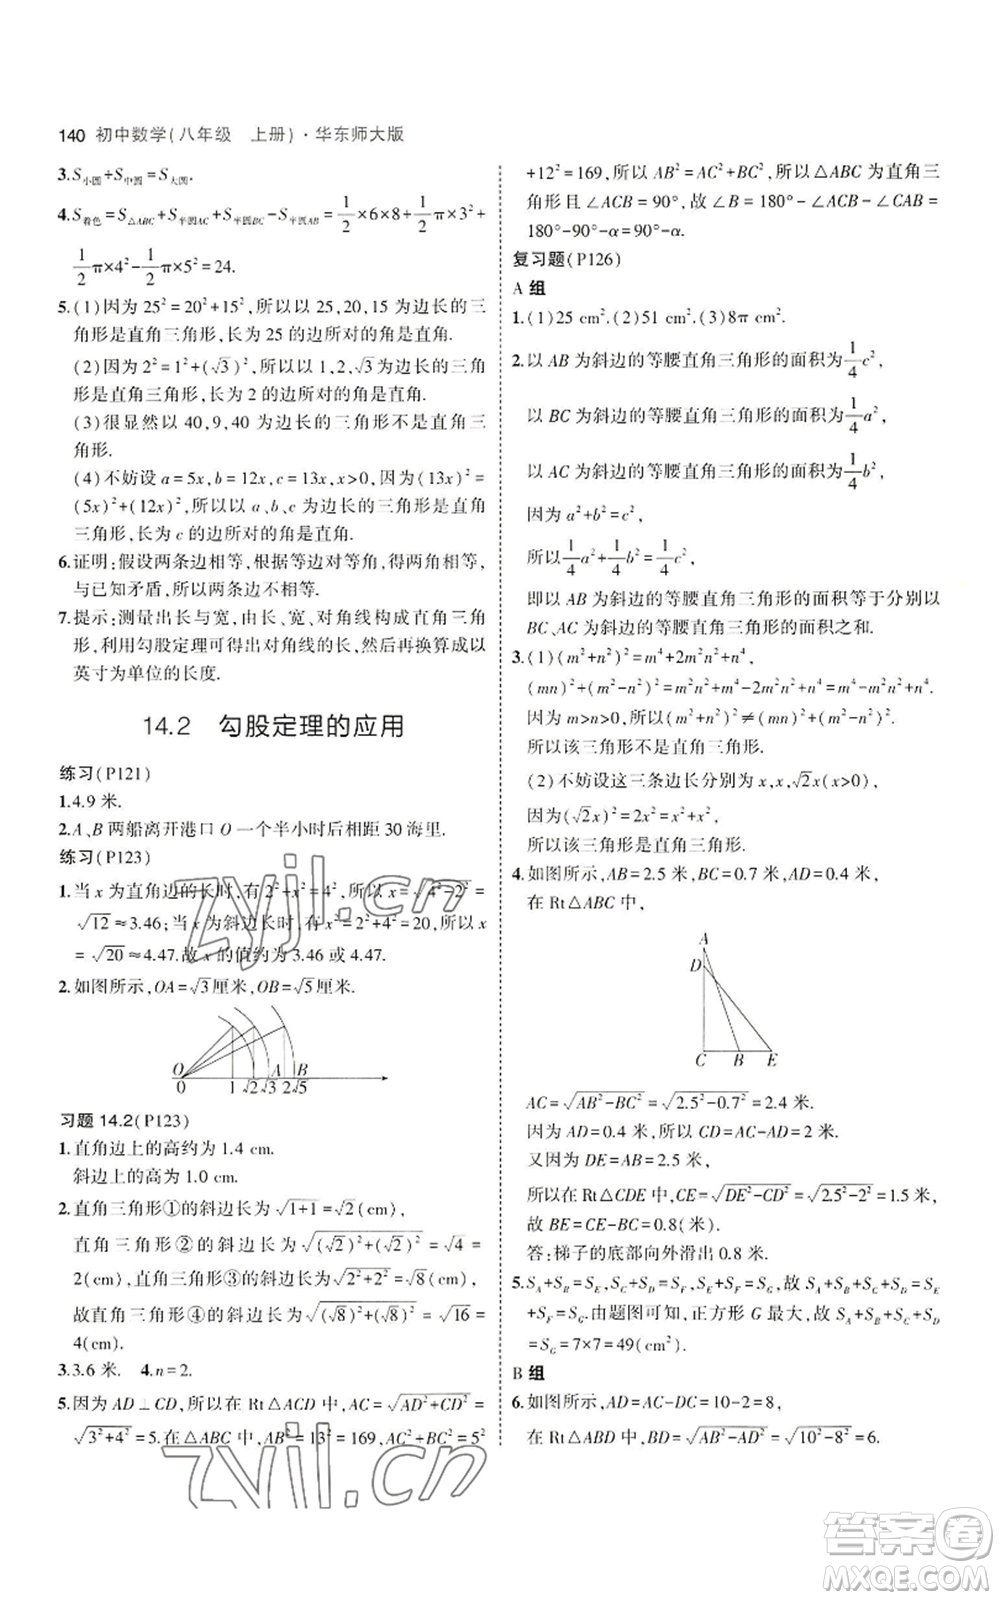 140 初中数学(八年级　上册)·华东师大版
3.S小圆+S中圆=S大圆.
4.S着色=S△ABC+S半圆AC+S半圆BC-S半圆AB=1/2×6×8+1/2π×3²+
1/2π×4²-1/2π×5²=24.
5.(1)因为25²=20²+15²,所以以25,20,15为边长的三
角形是直角三角形,长为25的边所对的角是直角.
(2)因为2²=1²+(√3)²,所以以1,2,√3为边长的三角
形是直角三角形,长为2的边所对的角是直角.
(3)很显然以40,9,40为边长的三角形不是直角三
角形.
(4)不妨设a=5x,b=12x,c=13x,x>0,因为(13x)²=
(5x)²+(12x)²,所以以a、b、c为边长的三角形是直角
三角形,长为c的边所对的角是直角.
6.证明:假设两条边相等,根据等边对等角,得两角相等,
与已知矛盾,所以两条边不相等.
7.提示:测量出长与宽,由长、宽、对角线构成直角三角
形,利用勾股定理可得出对角线的长,然后再换算成以
英寸为单位的长度.
14.2　勾股定理的应用
练习(P121)
1.4.9 米.
2.A、B两船离开港口O一个半小时后相距30海里.
练习(P123)
1.当x为直角边的长时,有2²+x²=4²,所以x=√(4²-2²)=
√12≈3.46;当x为斜边长时,有x²=2²+4²=20,所以x
=√20≈4.47.故x的值约为3.46或4.47.
2.如图所示,OA=√3厘米,OB=√5厘米.
O A B
0 1 √2 √3 2 √5
习题14.2(P123)
1.直角边上的高约为1.4 cm.
斜边上的高为1.0 cm.
2.直角三角形①的斜边长为√(1+1)=√2(cm),
直角三角形②的斜边长为√((√2)²+(√2)²)=√4=
2(cm),直角三角形③的斜边长为√(2²+2²)=√8(cm),
故直角三角形④的斜边长为√((√8)²+(√8)²)=√16=
4(cm).
3.3.6 米.　4.n=2.
5.因为AD⊥CD,所以在Rt△ACD中,AC=√(AD²+CD²)=
√(3²+4²)=5.在△ABC中,AB²=13²=169,AC²+BC²=5²
+12²=169,所以AB²=AC²+BC²,所以△ABC为直角三
角形且∠ACB=90°,故∠B=180°-∠ACB-∠CAB=
180°-90°-α=90°-α.
复习题(P126)
A 组
1.(1)25 cm².(2)51 cm².(3)8π cm².
2.以AB为斜边的等腰直角三角形的面积为1/4c²,
以BC为斜边的等腰直角三角形的面积为1/4a²,
以AC为斜边的等腰直角三角形的面积为1/4b²,
因为a²+b²=c²,
所以1/4a²+1/4b²=1/4c²,
即以AB为斜边的等腰直角三角形的面积等于分别以
BC、AC为斜边的等腰直角三角形的面积之和.
3.(1)(m²+n²)²=m⁴+2m²n²+n⁴,
(mn)²+(m²-n²)²=m²n²+m⁴-2m²n²+n⁴=m⁴-m²n²+n⁴.
因为m>n>0,所以(m²+n²)²≠(mn)²+(m²-n²)².
所以该三角形不是直角三角形.
(2)不妨设这三条边长分别为x,x,√2x(x>0),
因为(√2x)²=2x²=x²+x²,
所以该三角形是直角三角形.
4.如图所示,AB=2.5米,BC=0.7米,AD=0.4米,
在Rt△ABC中,
A
D
C B E
AC=√(AB²-BC²)=√(2.5²-0.7²)=2.4米.
因为AD=0.4米,所以CD=AC-AD=2米.
又因为DE=AB=2.5米,
所以在Rt△CDE中,CE=√(DE²-CD²)=√(2.5²-2²)=1.5米,
故BE=CE-BC=0.8(米).
答:梯子的底部向外滑出0.8米.
5.SA+SB=SE,SC+SD=SF,SE+SF=SG,故SA+SB+SC+SD
=SE+SF=SG.由题图可知,正方形G最大,故SA+SB+SC+SD
=SG=7×7=49(cm²).
B 组
6.如图所示,AD=AC-DC=10-2=8,
在Rt△ABD中,BD=√(AB²-AD²)=√(10²-8²)=6.
zyjl.cn
zyjl.cn
答案圈
MXQE.COM